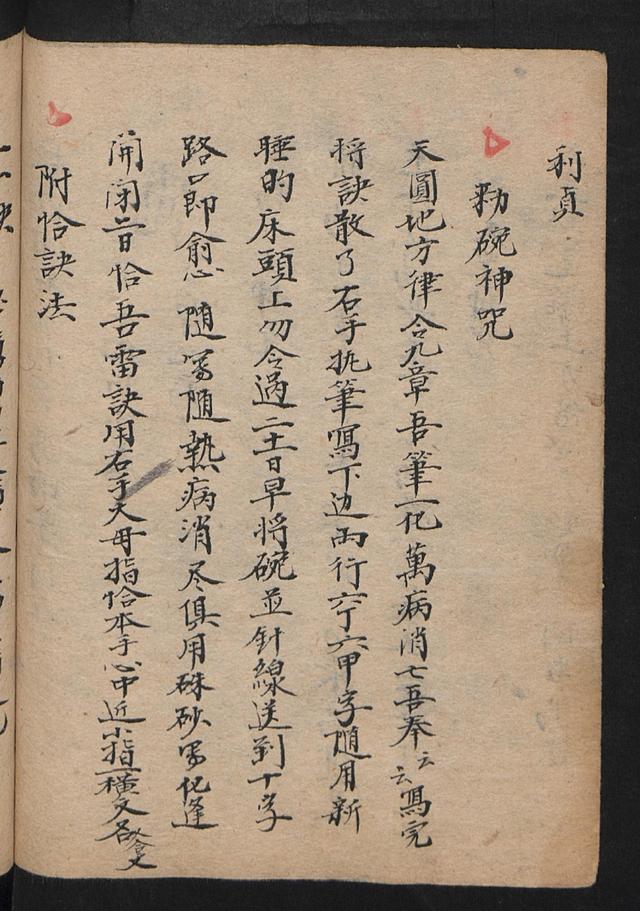 利貞
勅碗神咒
天圓地方律令九章吾筆一化萬病消亡吾奉云云寫完
將訣散了右手执筆寫下边両行六丁六甲字随用新
碗並針線送到十字
睡的床頭上勿令過二十一日早将碗並針線送到十字
路口即愈 随寫随熱病消尽俱用硃砂寫化逢
開閉 日恰吾雷訣用右手大母指恰本手心中近小指一横文名
附恰訣法